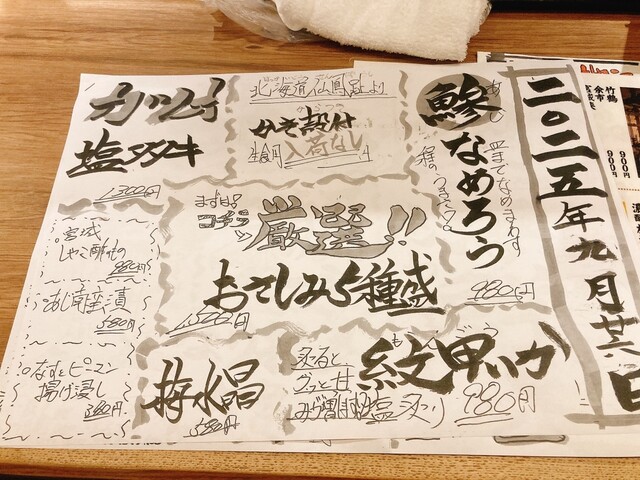 二〇二五年九月廿六日
鯵
あじ
なめろう
皿までなめまわす
程のうまさ!
980円
北海道仙鳳趾より
かき殻付
生食用
入荷なし
カツオ
塩タタキ
1300円
まずは!
コチラ
厳選!!
おさしみ5種盛
1,500円
宮城
しゃこ酢もの
980円
あじ南蛮漬
580円
なすとピーマン
揚げ浸し
580円
梅水晶
580円
紋甲いか
もんごう
炙ると
グッと甘
み増します
塩炙り
980円
竹鶴
900円
余市
900円